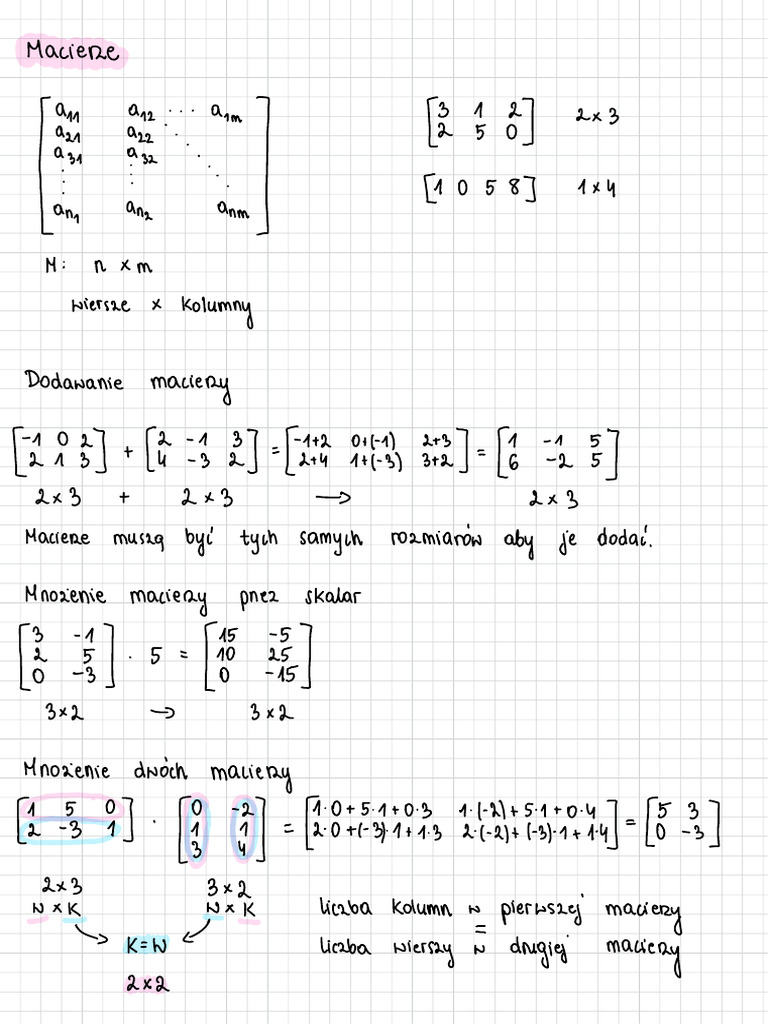 Macierze
[a11 a12 ... a1m
a21 a22
a31 a32
an1 an2 anm]
[3 1 2
2 5 0] 2 x 3
[1 0 5 8] 1 x 4
M: n x m
wiersze x kolumny
Dodawanie macierzy
[-1 0 2
2 1 3] + [2 -1 3
4 -3 2] = [-1+2 0+(-1) 2+3
2+4 1+(-3) 3+2] = [1 -1 5
6 -2 5]
2 x 3 + 2 x 3 → 2 x 3
Macierze muszą być tych samych rozmiarów aby je dodać.
Mnożenie macierzy przez skalar
[3 -1
2 5
0 -3] · 5 = [15 -5
10 25
0 -15]
3 x 2 → 3 x 2
Mnożenie dwóch macierzy
[1 5 0
2 -3 1] · [0 -2
1 1
3 4] = [1·0+5·1+0·3 1·(-2)+5·1+0·4
2·0+(-3)·1+1·3 2·(-2)+(-3)·1+1·4] = [5 3
0 -3]
2 x 3 3 x 2
W x K W x K
K=W
2 x 2
liczba kolumn w pierwszej macierzy
=
liczba wierszy w drugiej macierzy